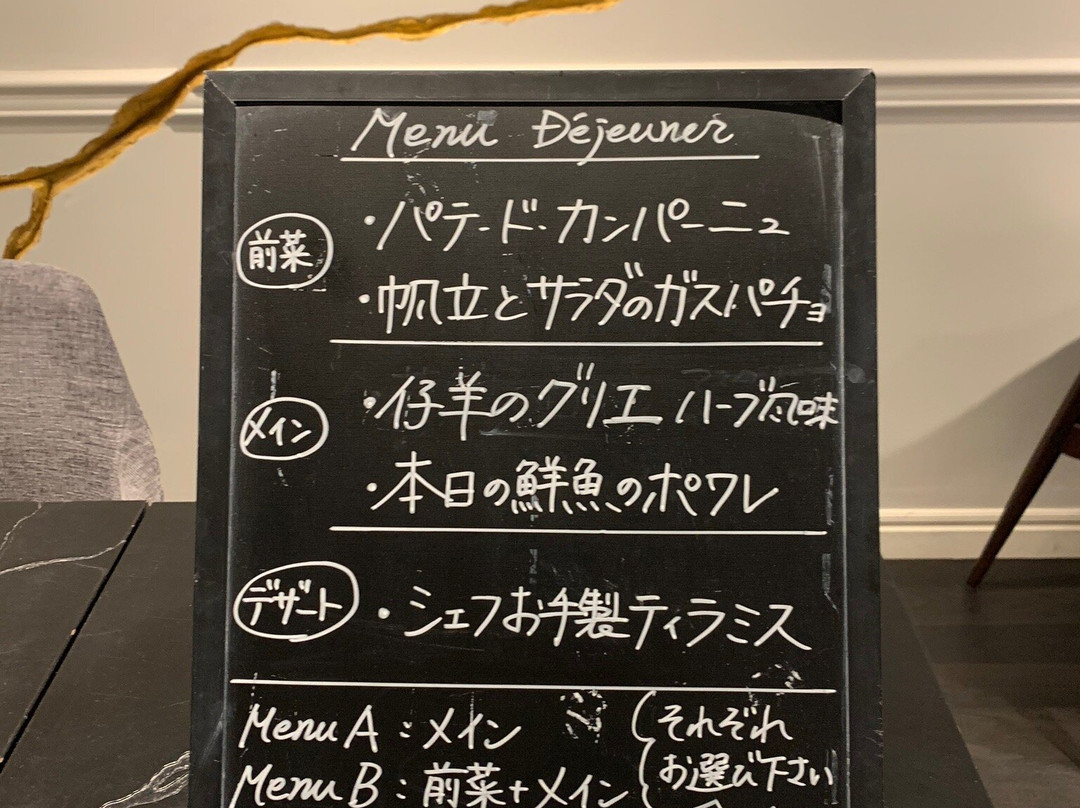 Menu Déjeuner
前菜
・パテ・ド・カンパーニュ
・帆立とサラダのガスパチョ
メイン
・仔羊のグリエ ハーブ風味
・本日の鮮魚のポワレ
デザート
・シェフお手製ティラミス
Menu A : メイン
Menu B : 前菜+メイン
(それぞれ
お選び下さい